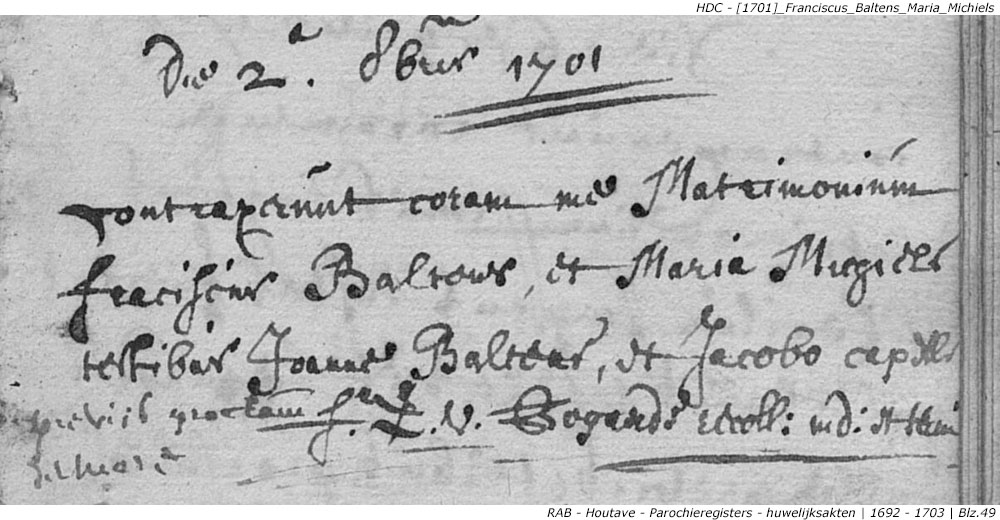 HDC - [1701]_Franciscus_Baltens_Maria_Michiels
Die 2.a 8bris 1701
Contraxerunt coram me Matrimonium
franciscus Baltens, et Maria Michiels
testibus Joanne Baltens, et Jacobo capelle
previis proclam f. L. v. recoll: et
RAB - Houtave - Parochieregisters - huwelijksakten | 1692 - 1703 | Blz.49